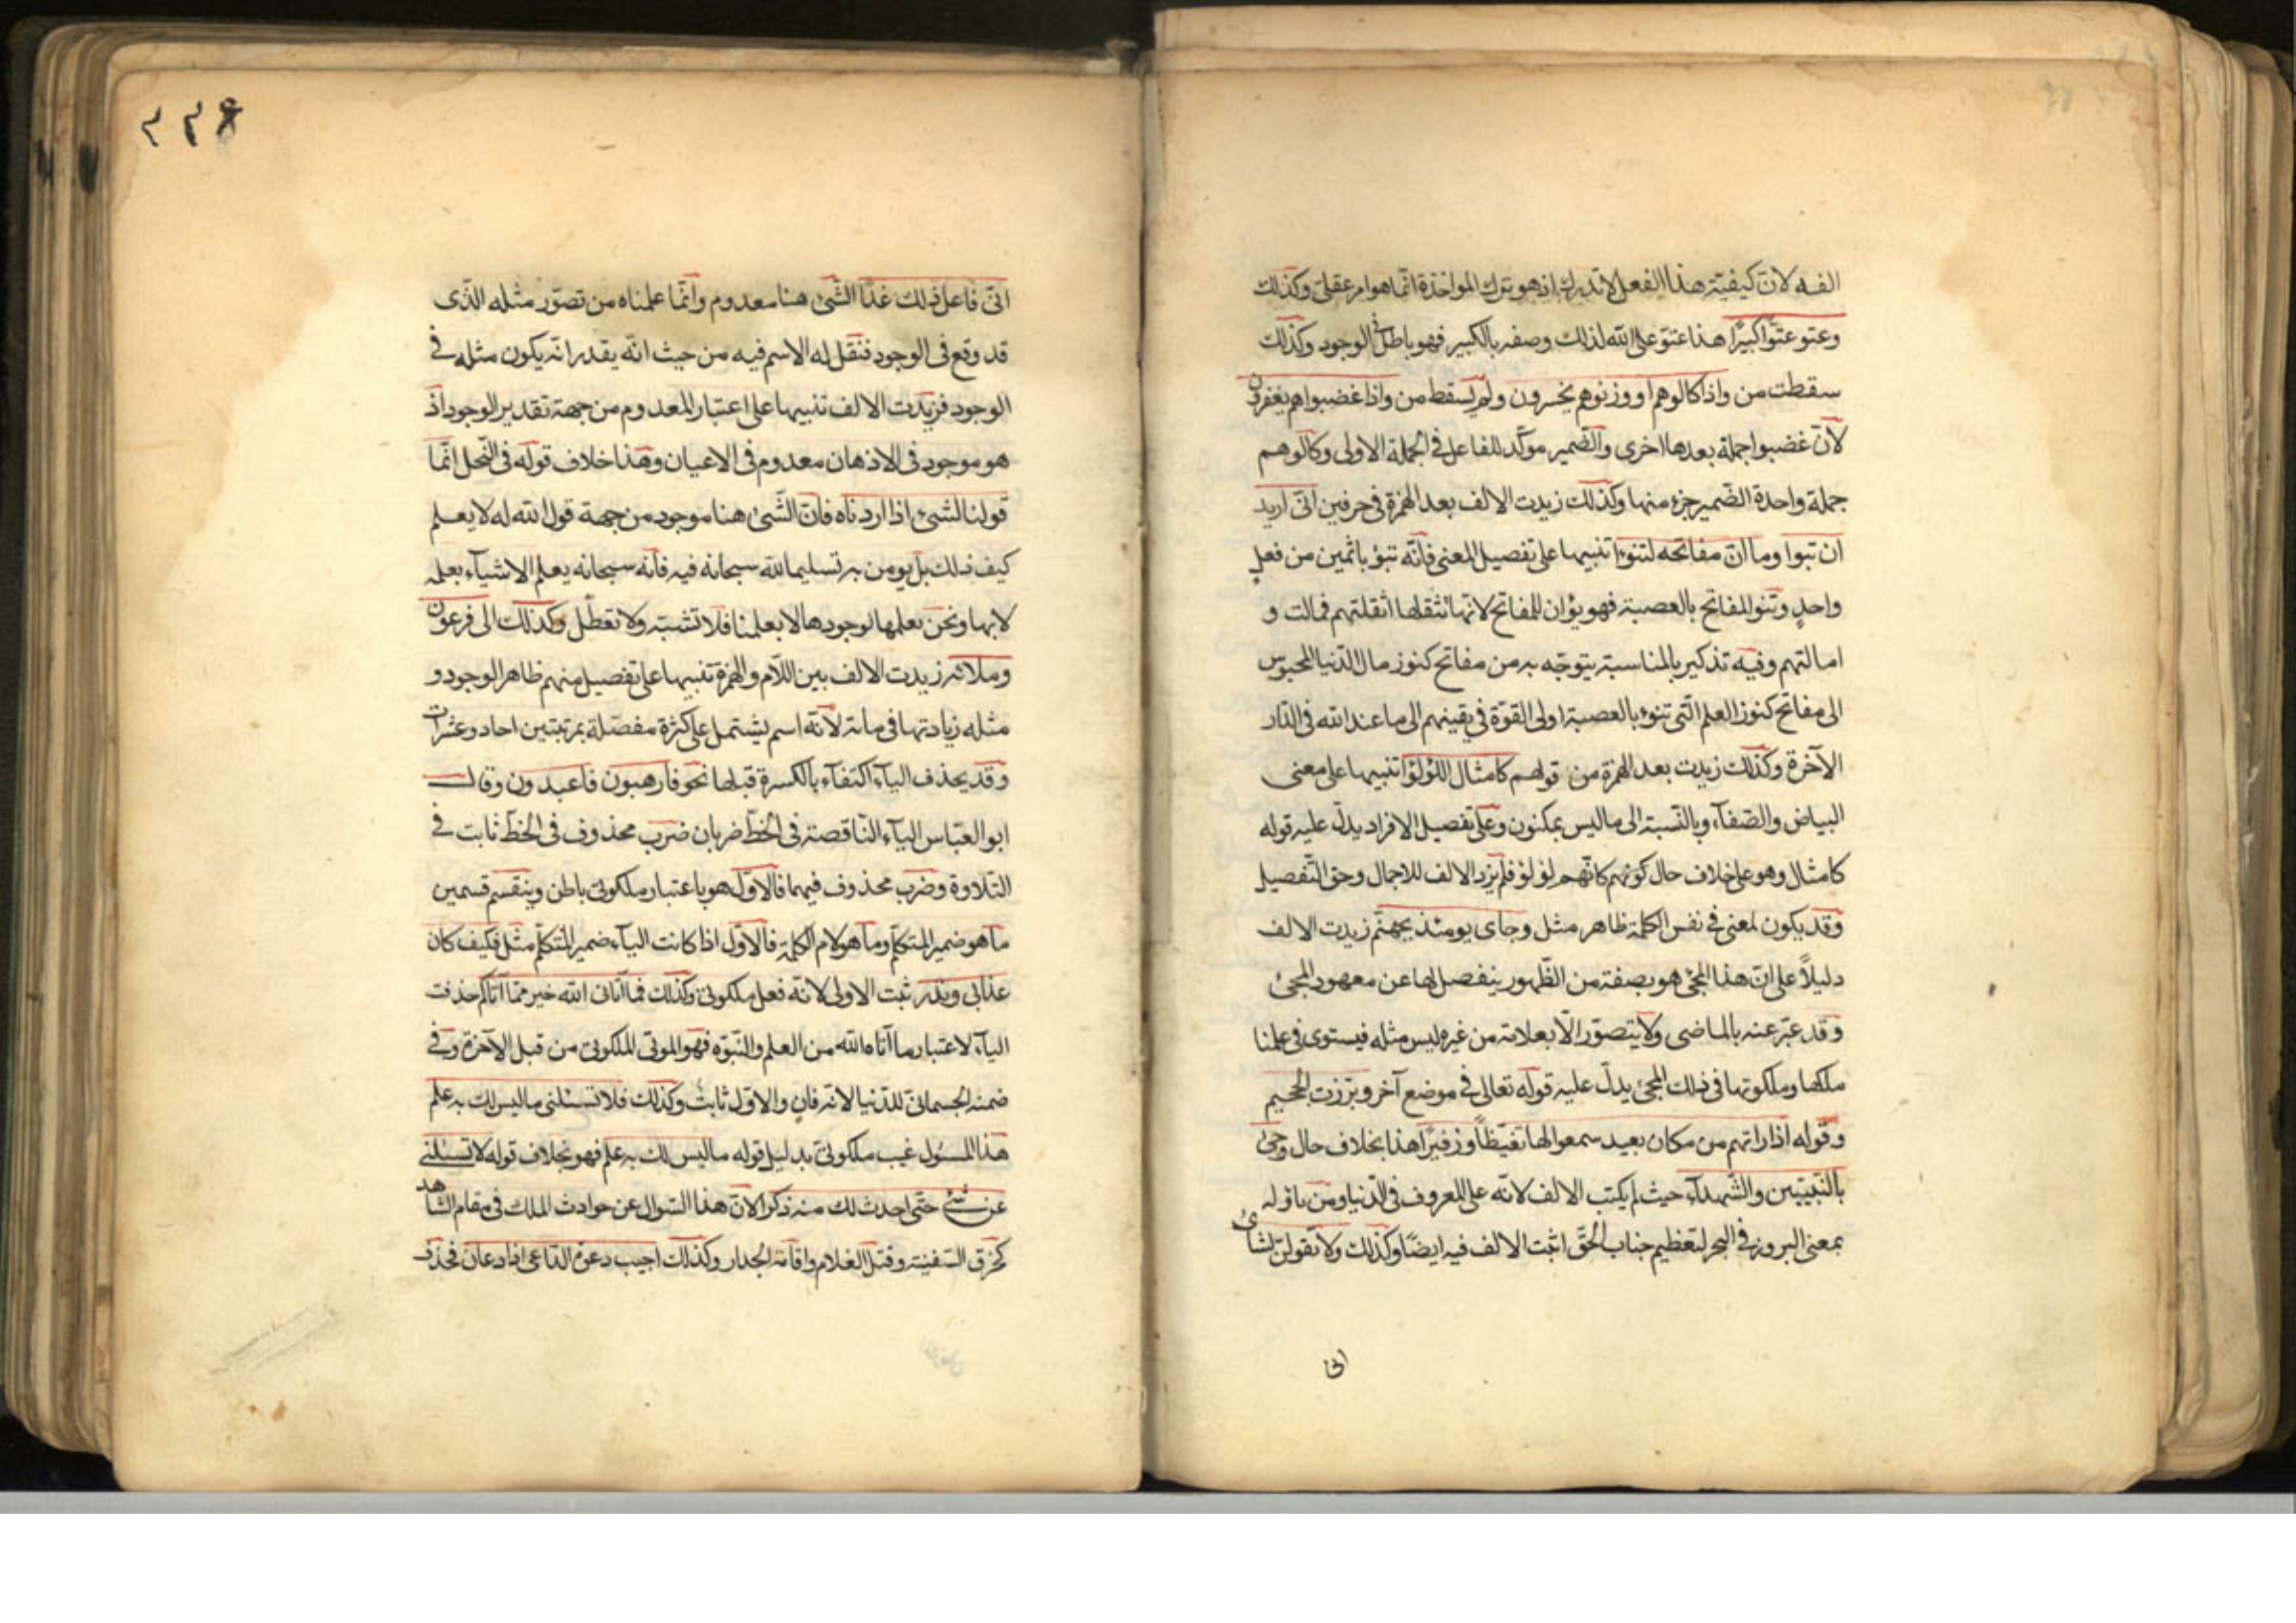 الفه لان كيفيّة هذا الفعل لا تدرك اذ هو ترك المواخذة انّما هو امر عقلىّ وكذلك
وعتو عتوّا كبيرًا هذا عتوّ على الله لذلك وصفه بالكبير فهو باطل فى الوجود وكذلك
سقطت من واذا كالوهم او وزنوهم يخسرون ولم يسقط من واذا غضبوا هم يغفرون
لانّ غضبوا جملة بعدها اخرى والضّمير موكّد للفاعل فى الجملة الاولى وكالوهم
جملة واحدة الضّمير جزء منها وكذلك زيدت الالف بعد الهمزة فى حرفين انّى اريد
ان تبوا وما انّ مفاتحه لتنوءا تنبيها على تفصيل المعنى فانّه تبوء باثمين من فعلٍ
واحدٍ وتنو المفاتح بالعصبة فهو نؤان للمفاتح لانّها تثقلها اثقلتهم فمالت و
امالتهم وفيه تذكير بالمناسبة يتوجّه به من مفاتح كنوز مال الدّنيا المحبوس
الى مفاتح كنوز العلم الّتى تنوء بالعصبة اولى القوّة فى يقينهم الى ما عند الله فى الدّار
الآخرة وكذلك زيدت بعد الهمزة من قولهم كامثال اللؤلؤا تنبيها على معنى
البياض والصّفآء وبالنّسبة الى ما ليس بمكنون وعلى تفصيل الافراد يدلّ عليه قوله
كامثال وهو على خلاف حال كونهم كانّهم لؤلؤ فلم يزد الالف للاجمال وحق التّفصيل
وقد يكون لمعنى فى نفس الكلمة ظاهر مثل وجاى يومئذ بجهنّم زيدت الالف
دليلاً على انّ هذا المجئ هو بصفة من الظّهور ينفصل بها عن معهود المجئ
وقد عبّر عنه بالماضى ولا يتصوّر الّا بعلامة من غيره ليس مثله فيستوى فى علمنا
ملكها وملكوتها فى ذلك المجئ يدلّ عليه قوله تعالى فى موضع آخر وبرّزت الجحيم
وقوله اذا راتهم من مكان بعيد سمعوا لها تغيّظاً وزفيرًا هذا بخلاف حال وجئ
بالنّبيّين والشّهدآء حيث لم يكتب الالف لانّه على المعروف فى الدّنيا ومن تاوّله
بمعنى البروز فى المحشر لتعظيم جناب الحقّ اثبت الالف فيه ايضًا وكذلك ولا تقولنّ لشاىْ
انّى
٢٢٤
انّى فاعل ذلك غدًا الشّئ هنا معدوم وانّما علمناه من تصوّر مثله الّذى
قد وقع فى الوجود فنقل له الاسم فيه من حيث انّه يقدر انّه يكون مثله فى
الوجود فزيدت الالف تنبيها على اعتبار المعدوم من جهة تقدير الوجود اذ
هو موجود فى الاذهان معدوم فى الاعيان وهذا خلاف قوله فى النّحل انّما
قولنا لشئ اذا اردناه فانّ الشّئ هنا موجود من جهة قول الله له لا يعلم
كيف ذلك بل يومن به تسليما لله سبحانه فيه فانّه سبحانه يعلم الاشيآء بعلمه
لا بها ونحن نعلمها بوجودها لا بعلمنا فلا تشبّه ولا تعطّل وكذلك الى فرعون
وملائه زيدت الالف بين اللّام والهمزة تنبيها على تفصيل منهم ظاهر الوجود و
مثله زيادتها فى مائة لانّه اسم يشتمل على كثرة مفصّلة بمرتبتين احاد وعشرات
وقد يحذف اليآء اكتفآء بالكسرة قبلها نحو فارهبون فاعبدون وقال
ابو العبّاس اليآء النّاقصة فى الخطّ ضربان ضرب محذوف فى الخطّ ثابت فى
التّلاوة وضرب محذوف فيهما فالاوّل هو باعتبار ملكوتى باطن وينقسم قسمين
ما هو ضمير المتكلّم وما هو لام الكلمة فالاوّل اذا كانت اليآء ضمير المتكلّم مثل فكيف كان
عذابى ونذر ثبت الاولى لانّه فعل ملكوتىّ وكذلك فما آتانى الله خير ممّا آتاكم حذفت
اليآء لاعتبار ما آتاه الله من العلم والنّبوّه فهو الموتى الملكوتى من قبل الآخرة وفى
ضمنه الجسمانىّ للدّنيا لانّه فانٍ والاوّل ثابت وكذلك فلا تسئلنى ما ليس لك به علم
هذا المسئول غيب ملكوتىّ بدليل قوله ما ليس لك به علم فهو بخلاف قوله لا تسئلنى
عن شئ حتّى احدث لك منه ذكرا لانّ هذا السّوال عن حوادث الملك فى مقام الشّاهد
كخرق السّفينة وقتل الغلام واقامة الجدار وكذلك اجيب دعوة الدّاعى اذا دعان فحذف